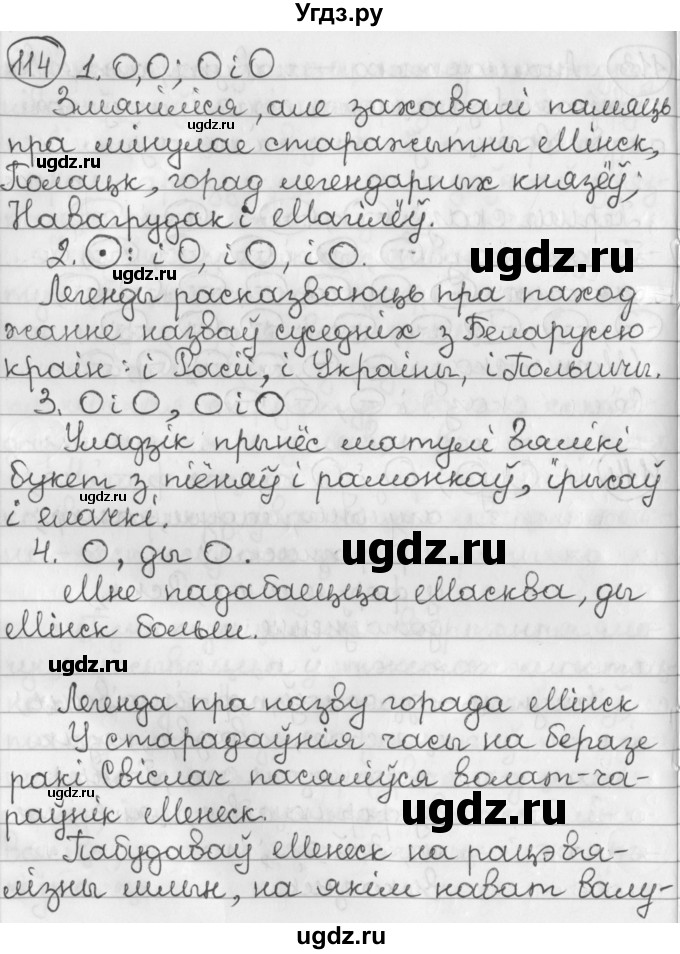 Угдз.ру
114 1. О, О; О і О
Змяніліся, але захавалі памяць
пра мінулае старажытны Мінск,
Полацк, горад легендарных князёў;
Навагрудак і Магілёў.
2. ⊙: і О, і О, і О.
Легенды расказваюць пра паход
жанне назваў суседніх з Беларуссю
краін: і Расіі, і Украіны, і Польшчы.
3. О і О, О і О
Уладзік прынёс матулі вялікі
букет з піёняў і рамонкаў, ірысаў
і ёлачкі.
4. О, ды О.
Мне падабаецца Масква, ды
Мінск больш.
Легенда пра назву горада Мінск
У старадаўнія часы на беразе
ракі Свіслач пасяліўся волат-ча-
раўнік Менеск.
Пабудаваў Менеск на рацэ вя-
лізны млын, на якім нават валу-
ugdz.ru
ugdz.ru
ugdz.ru
ugdz.ru
ugdz.ru
ugdz.ru
ugdz.ru
ugdz.ru
ugdz.ru
ugdz.ru